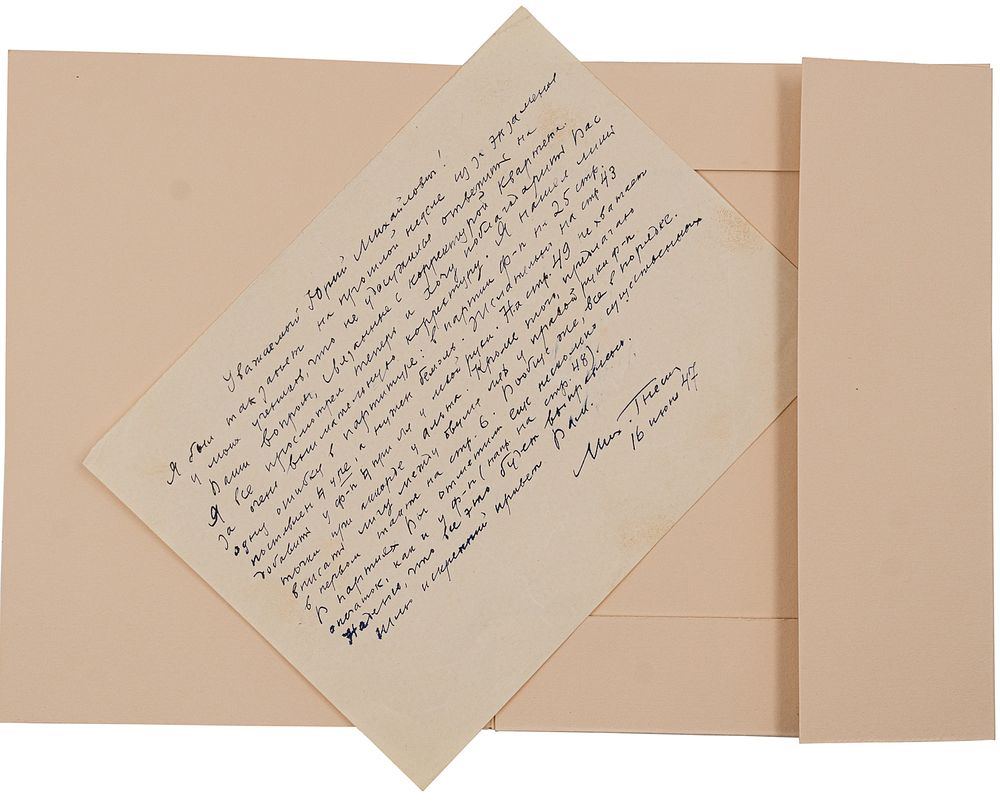 Уважаемый Юрий Михайлович!
Я был так занят на прошлой неделе из за экзаменов
у моих учеников, что не удосужился ответить на
Ваши вопросы, связанные с корректурой квартета.
Я все просмотрел теперь и хочу поблагодарить Вас
за очень внимательную корректуру. Я нашел лишь
одну ошибку в партитуре: в партии ф-п на 25 стр.
поставлен ♮ у ре, а нужен бемоль. Желательно на стр 43
добавить у ф-п ♮ при ля у левой руки. На стр. 49 не хватает
точки при аккорде у альта. Кроме того, предлагаю
вписать лигу между двумя ля у правой руки ф-п
в первом такте на стр. 6. Вообще же, все в порядке.
В партиях Вы отметили еще несколько существенных
опечаток, как и у ф-п (напр. на стр. 48).
Надеюсь, что все это будет выправлено.
Шлю искренний привет Вам.
Мих Гнесин
16 июня 47